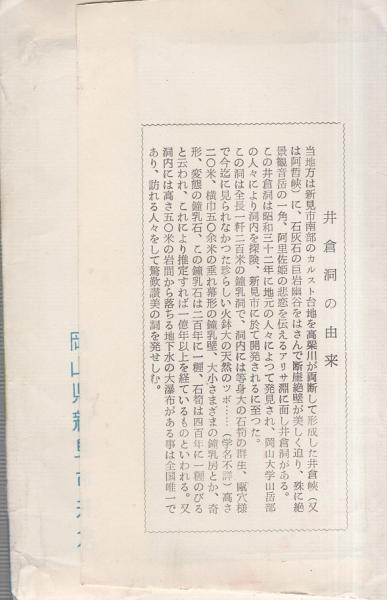 井倉洞の由来
当地方は新見市南部のカルスト台地を高梁川が両断して形成した井倉峡(又
は阿哲峡)に、石灰石の巨岩幽谷をはさんで断崖絶壁が美しく迫り、殊に絶
景観音岳の一角、阿里佐姫の悲恋を伝えるアリサ淵に面し井倉洞がある。
この井倉洞は昭和三十二年に地元の人々によつて発見され、岡山大学山岳部
の人々により洞内を探険、新見市に於て開発されるに至つた。
この洞は全長一粁二百米の鐘乳洞で、洞内には等身大の石筍の群生、甌穴様
で今迄に見られなかつた珍らしい火鉢大の天然のツボ……(学名不詳)高さ
二〇米、横巾五〇余米の垂れ幕形の鐘乳壁、大小さまざまの鐘乳房とか、奇
形、変態の鐘乳石、この鐘乳石は二百年に一糎、石筍は四百年に一糎のびる
と云われ、これにより推定すれば一億年以上を経ているものといわれる。又
洞内には高さ五〇米の岩間から落ちる地下水の大瀑布がある事は全国唯一で
あり、訪れる人々をして驚歎讃美の詞を発せしむ。
岡山県新見市井